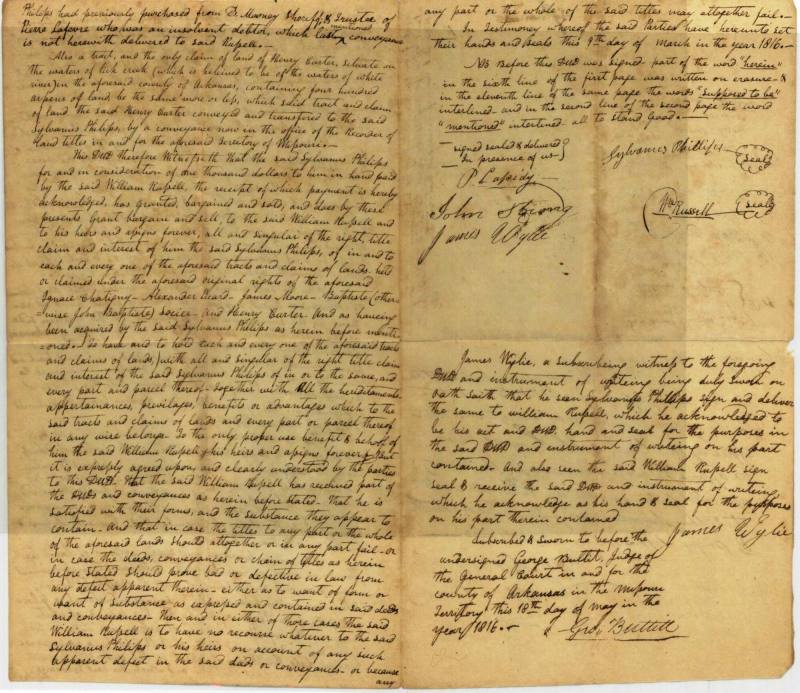 Philips had previously purchased from D. Mooney Sheriff, & Trustee of
Piere Lefevre who was an insolvent debtor, which last mentioned conveyance
is not herewith delivered to said Russell.
Also a tract, and the only claim of land of Henry Carter, situate on
the waters of lick creek (which is believed to be of the waters of white
river) in the aforesaid county of Arkansas, containing four hundred
arpens of land, be the same more or less, which said tract and claim
of land the said Henry Carter conveyed and transferred to the said
Sylvanus Philips, by a conveyance now in the office of the Recorder of
land titles in and for the aforesaid Territory of Missouri.
This Deed Therefore Witnesseth that the said Sylvanus Philips
for and in consideration of one thousand dollars to him in hand paid
by the said William Russell, the receipt of which payment is hereby
acknowledged, has Granted, bargained and sold, and does by these
presents Grant bargain and sell, to the said William Russell and
to his heirs and assigns forever, all and singular of the right, title
claim and interest of him the said Sylvanus Philips, of in and to
each and every one of the aforesaid tracts and claims of lands held
or claimed under the aforesaid original rights of the aforesaid
Ignace Chatigny- Alexander Picard- James Moore- Baptiste (other-
=wise John Baptiste) Socier- and Henry Carter. And as haveing
been acquired by the said Sylvanus Philips as herein before menti-
=oned. To have and to hold each and every one of the aforesaid tracts
and claims of lands, with all and singular of the right title claim
and interest of the said Sylvanus Philips of in or to the same, and
every part and parcel thereof- together with all the hereditaments
appertainances, previlages, benefits or advantages which to the
said tracts and claims of lands and every part or parcel thereof
in any wise belongs. To the only proper use benefit & behoof of
him the said William Russell & his heirs and assigns forever. But
it is expressly agreed upon, and clearly understood by the parties
to this Deed. That the said William Russell has received part of
the Deeds and conveyances as herein before stated. That he is
satisfied with their forms, and the substance they appear to
contain. And that in case the titles to any part or the whole
of the aforesaid lands should altogether or in any part fail- or
in case the deeds, conveyances or chain of titles as herein
before stated should prove bad or defective in law from
any defect apparent therein- either as to want of form or
want of substance as expressed and contained in said deeds
and conveyances- Then and in either of those cases the said
William Russell is to have no recourse whatever to the said
Sylvanus Philips or his heirs on account of any such
apparent defect in the said deeds or conveyances- or because
any
any part or the whole of the said titles may altogether fail.-
In Testimony whereof the said Parties have hereunto set
their hands and seals this 9th day of March in the year 1816.-
NB Before this Deed was signed- part of the word "herein"
in the sixth line of the first page was written on erasure- &
in the eleventh line of the same page the words "supposed to be"
interlined- and in the second line of the second page the word
"mentioned" interlined- all to stand good.-
signed sealed & delivered
In presence of us-
P. Cassidy
John
James Wylie
Sylvanus Phillips seal
Wm Russell seal
James Wylie, a subscribing witness to the foregoing
Deed and instrument of writeing being duly sworn on
oath saith that he seen Sylvanus Phillips sign and deliver
the same to william Russell, which he acknowledged to
be his act and deed, hand and seal for the purposes in
the said Deed and instrument of writeing on his part
contained- And also seen the said William Russell sign
seal & receive the said Deed and instrument of writeing
which he acknowledge as his hand & seal for the purposes
on his part therein contained
James Wylie
Subscribed & Sworn to before the
undersigned George Bullet, Judge of
the General Court in and for the
county of Arkansas in the Missouri
Territory this 18th day of May in the
year 1816.-
Geo. Bullett